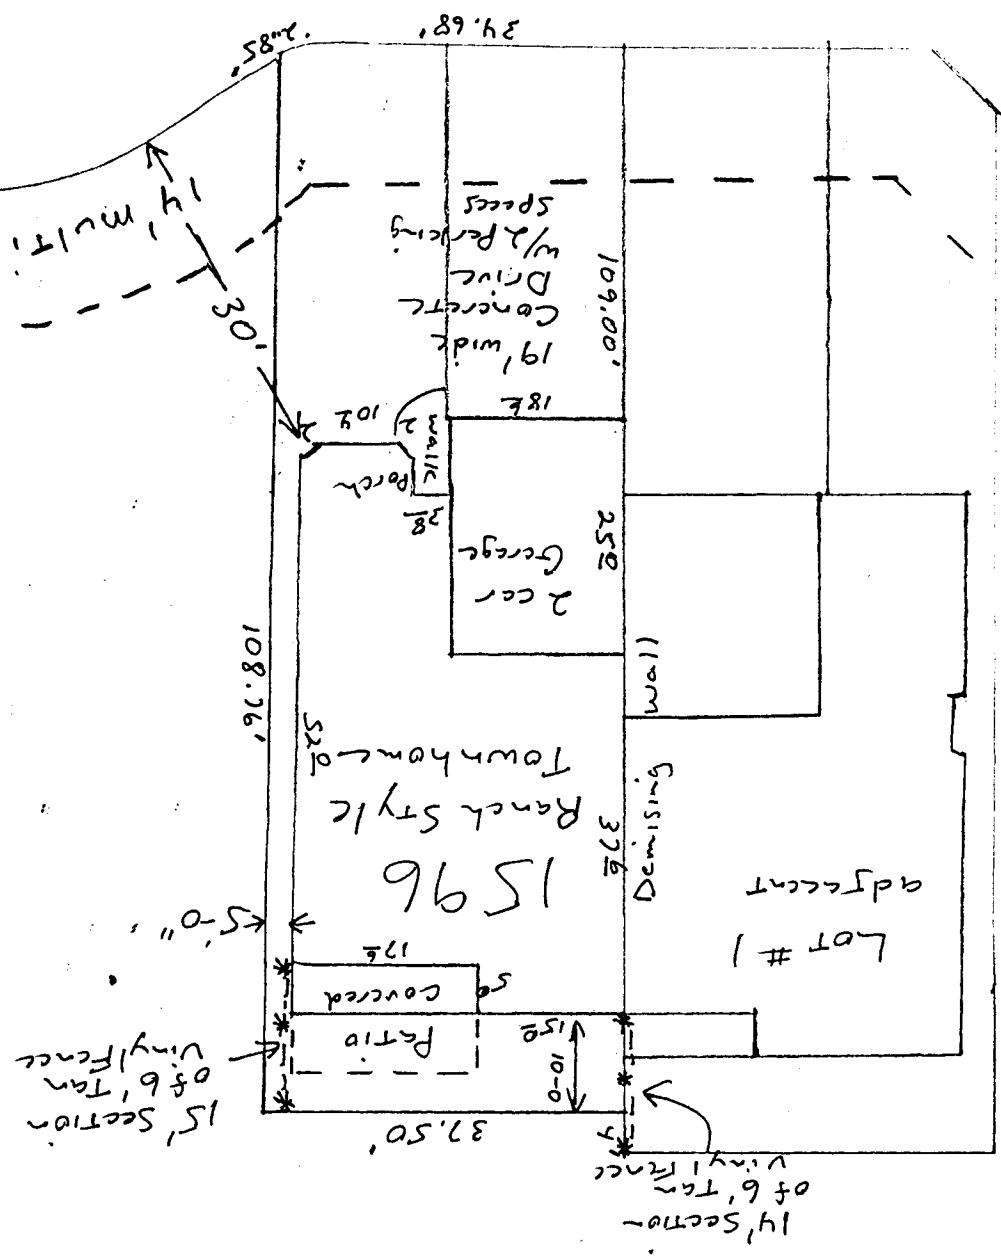 14' Section
of 6' Tan
Vinyl Fence
4'
37.50'
15' Section
of 6' Tan
Vinyl Fence
10-0
15⁰
Patio
Covered
5⁰
17⁶
5'-0"
LOT #1
adjacent
1596
Ranch Style
Townhome
Demising
Wall
37⁶
52⁰
108.76'
2 car
Garage
25⁰
3⁸
Porch
walk
2
10⁴
2
18⁶
19' wide
Concrete
Drive
w/2 Parking
Spaces
109.00'
30'
14' multi
2.85'
34.68'